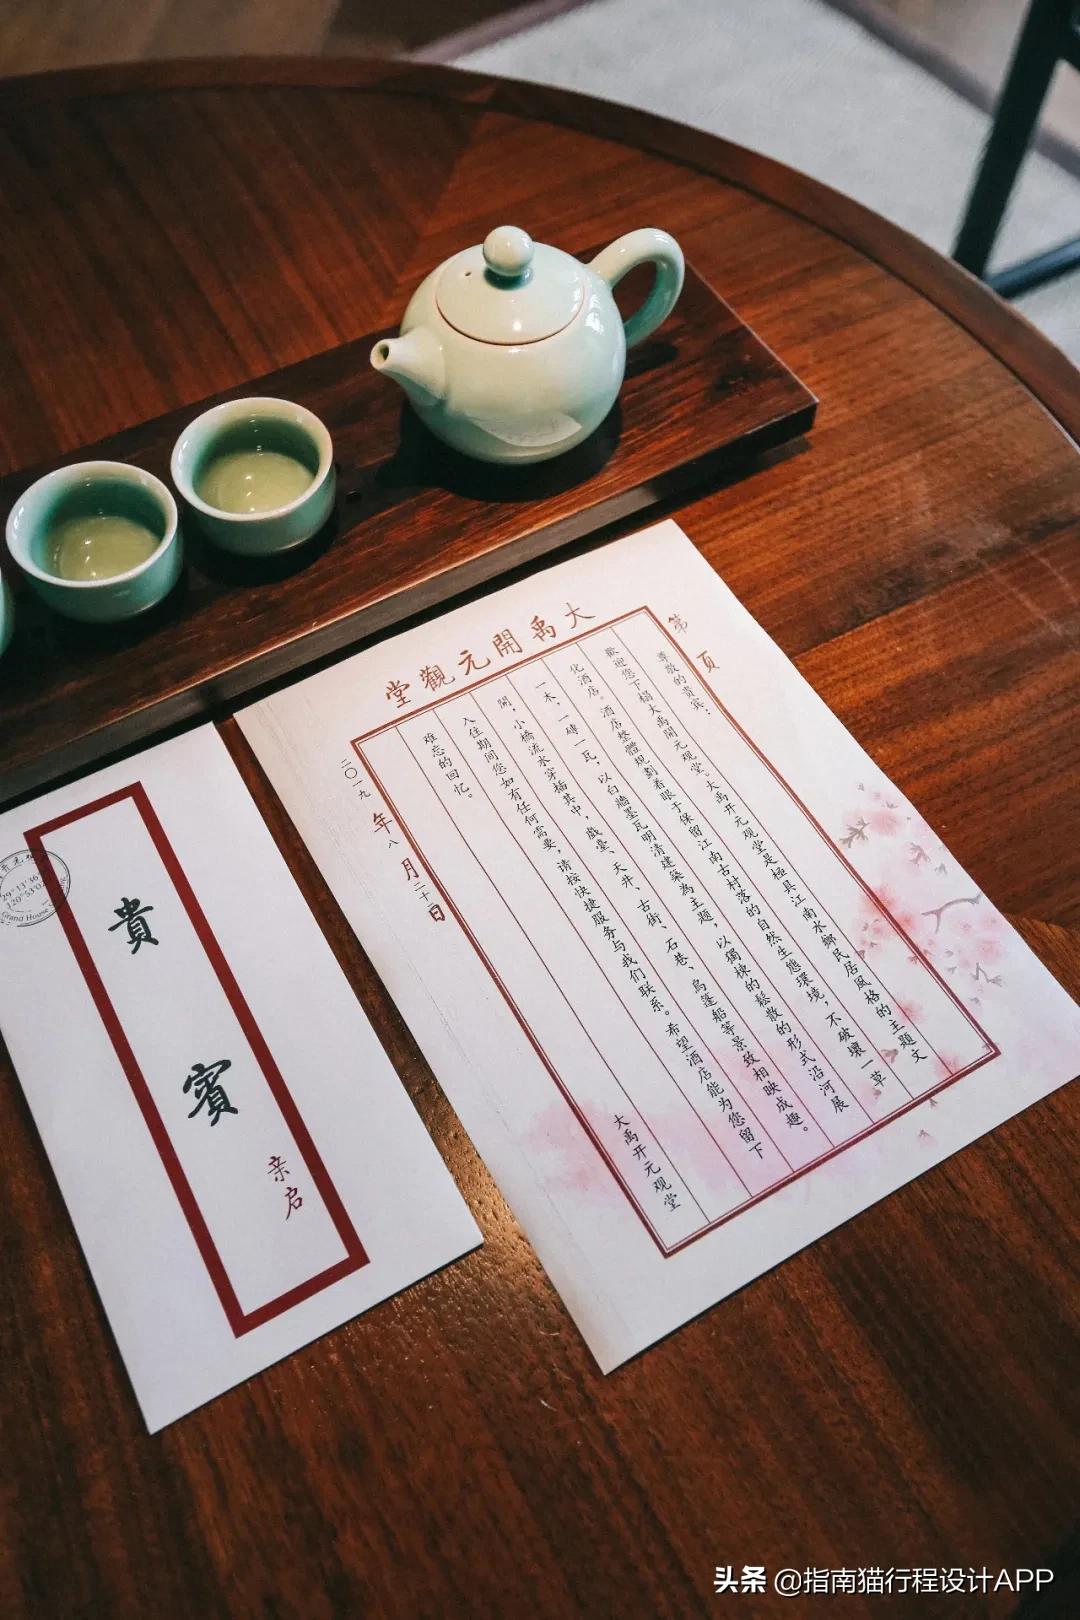 大禹開元觀堂
第 頁
尊敬的贵宾：
歡迎您下榻大禹開元观堂。大禹开元观堂是極具江南水鄉民居風格的主題文
化酒店。酒店整體規劃着眼于保留江南古村落的自然生態環境，不破壞一草
一木，一磚一瓦，以白牆墨瓦明清建築為主題，以獨棟的鬆散的形式沿河展
開，小橋流水穿插其中，戲臺、天井、古街、石巷、烏蓬船等景致相映成趣。
入住期间您如有任何需要，请按快捷服务与我们联系。希望酒店能为您留下
难忘的回忆。
大禹开元观堂
二〇一九年八月二十一日
貴賓
亲启
29°13'36
120°53'0
Grand House
头条 @指南猫行程设计APP